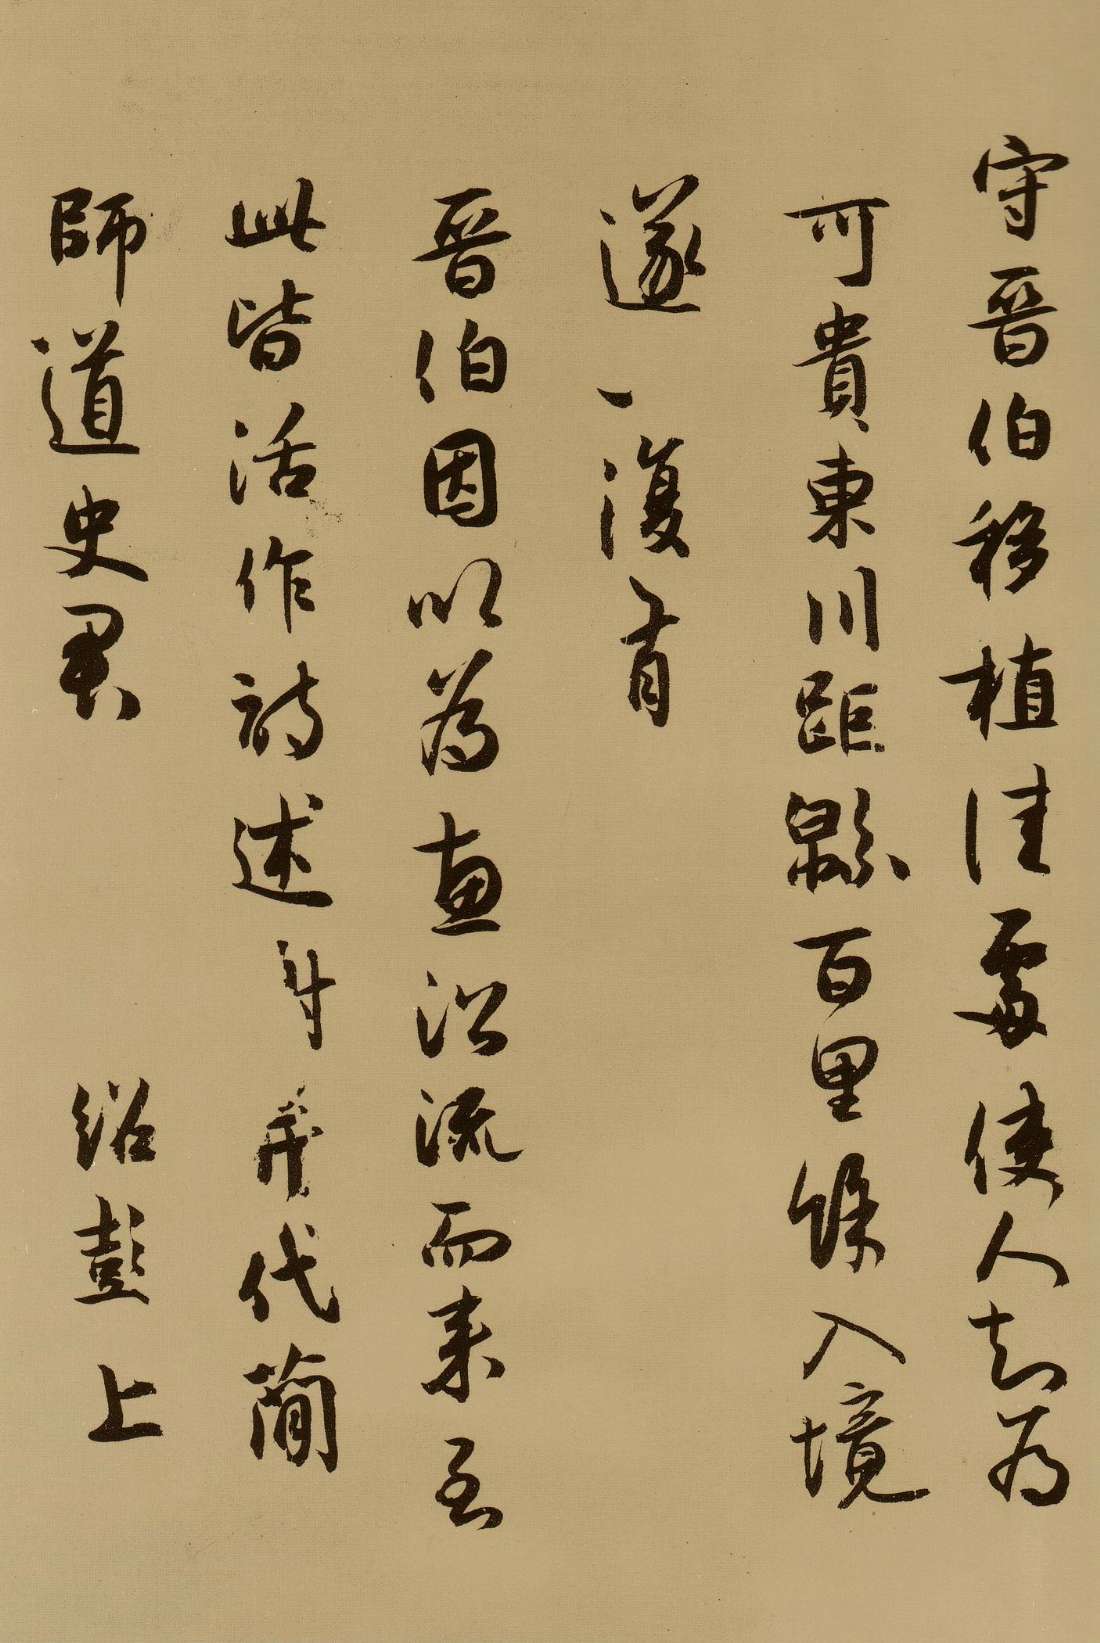 守晉伯移植佳處使人知為
可貴東川距緜百里餘入境
遂一復有
晉伯因以為惠沿流而來至
此皆活作詩述謝并代簡
師道史君 紹彭上